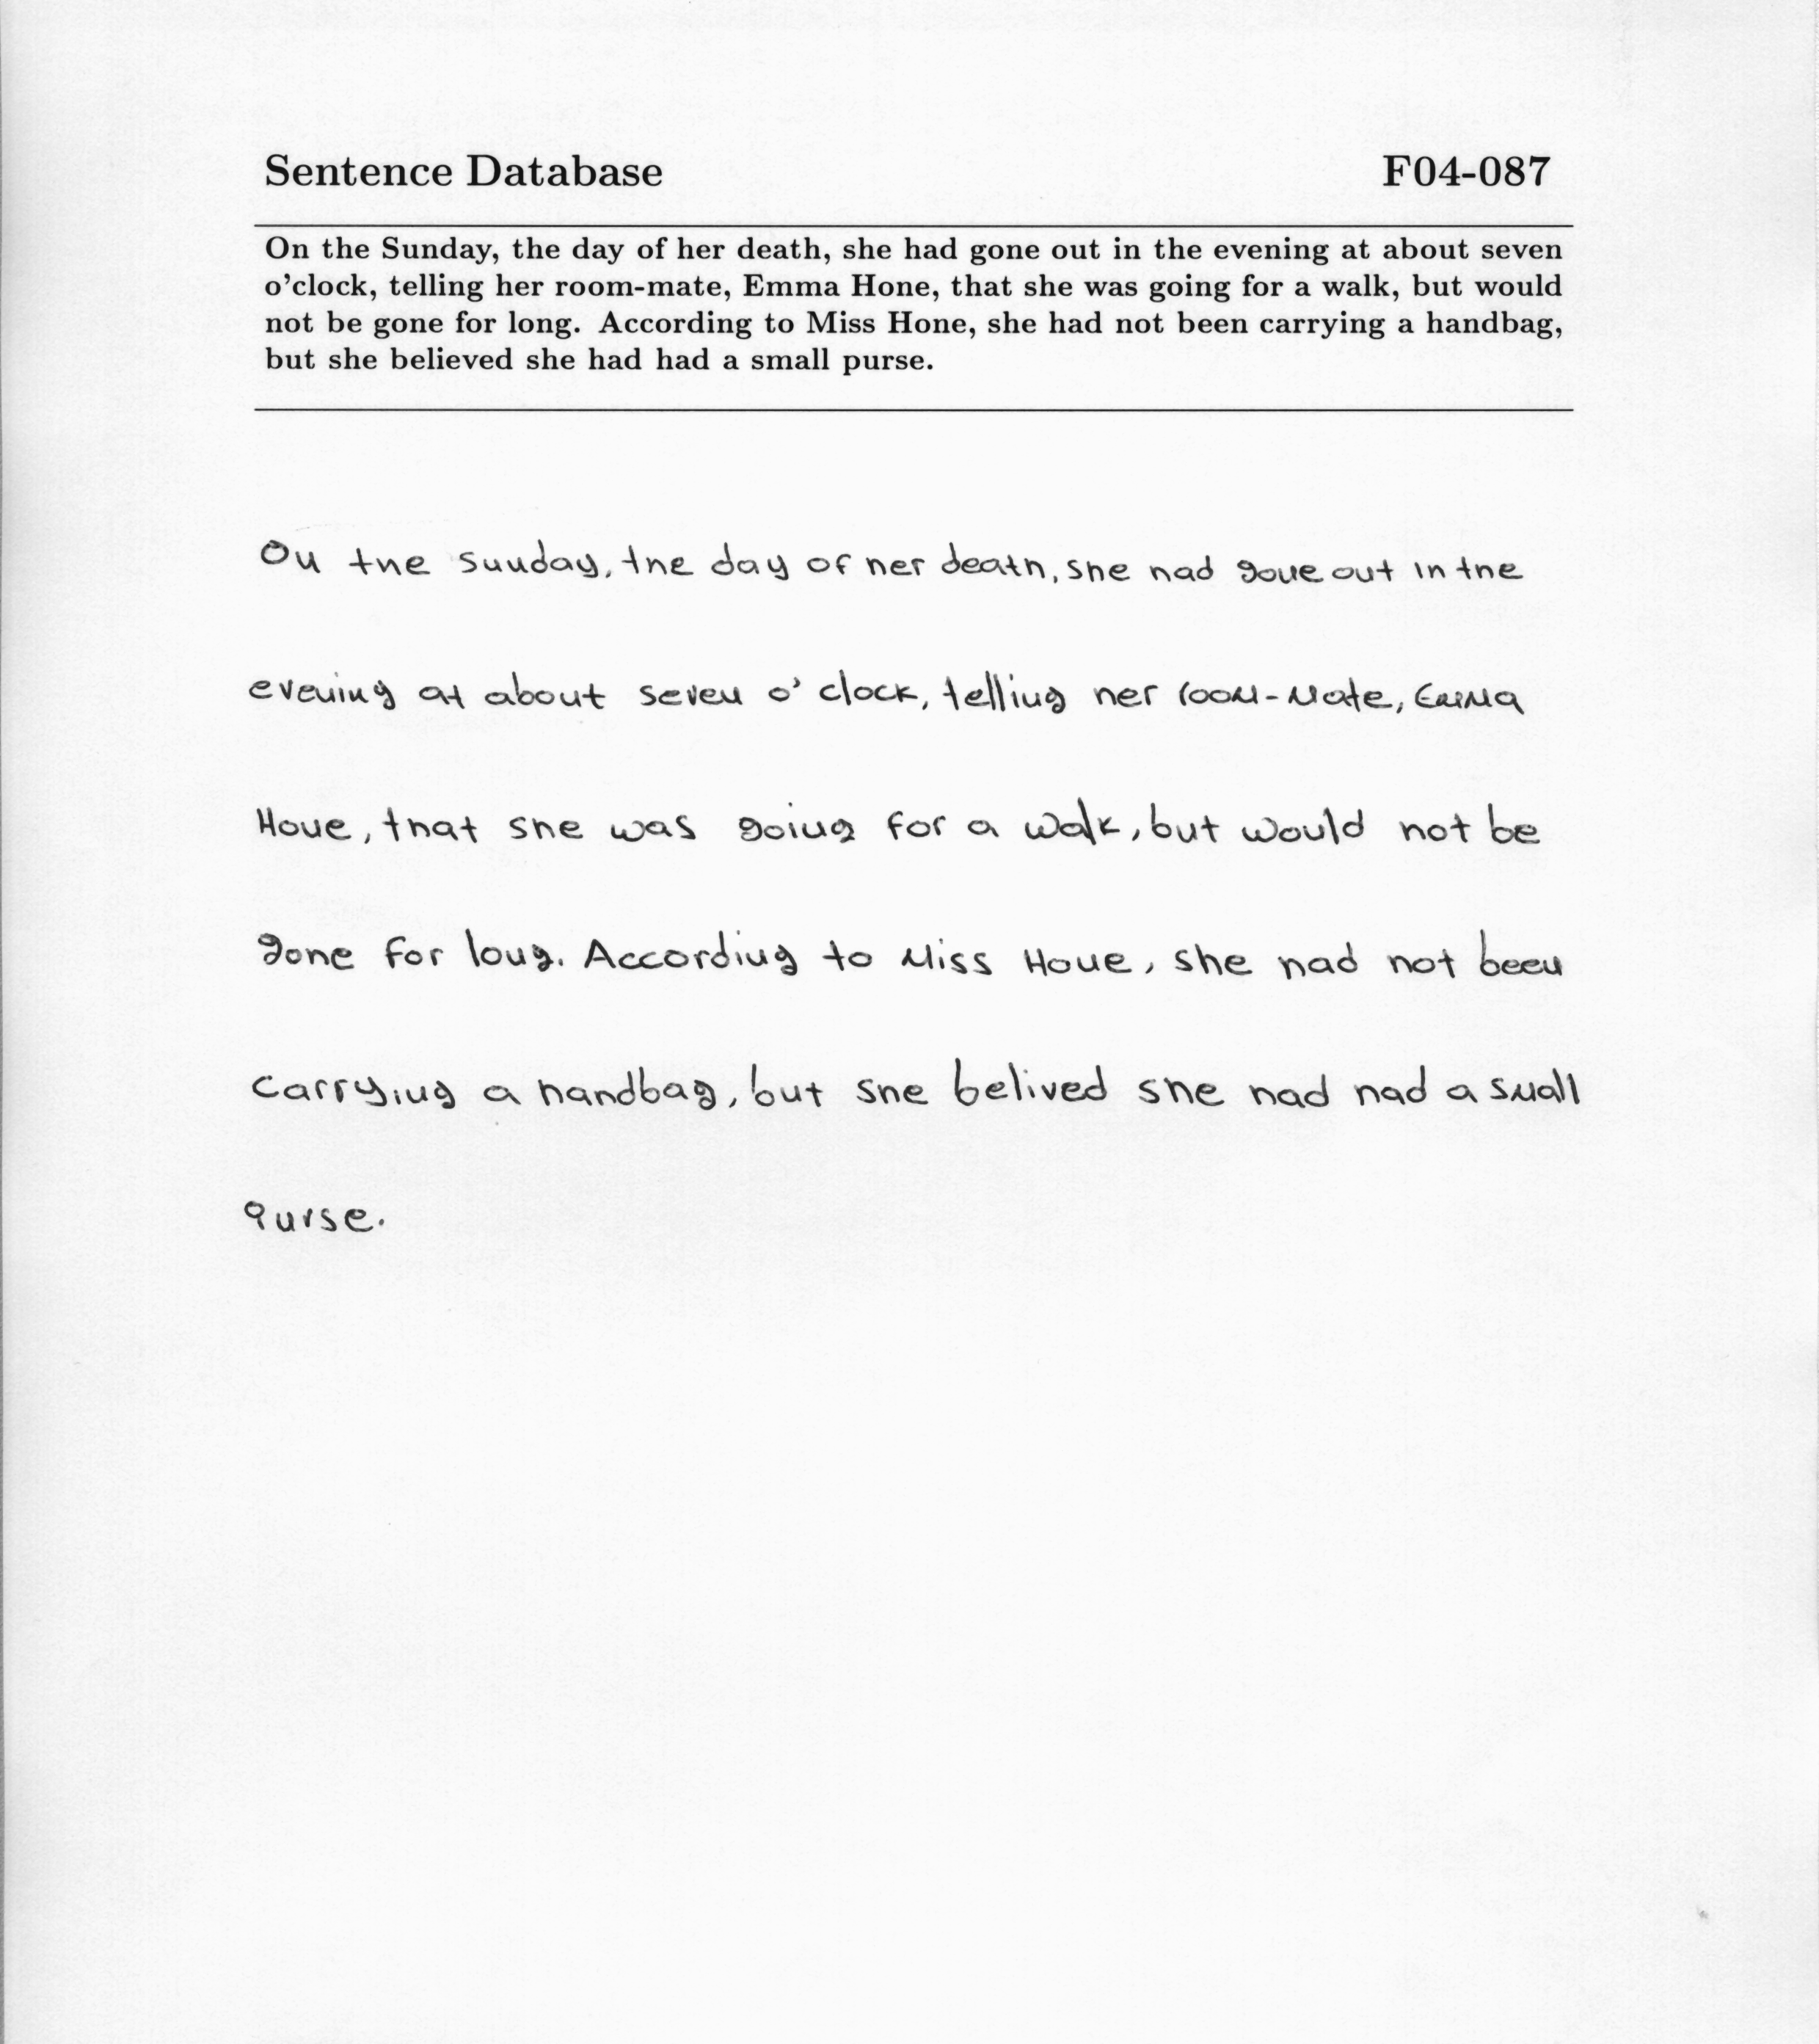 Sentence Database F04-087
On the Sunday, the day of her death, she had gone out in the evening at about seven
o'clock, telling her room-mate, Emma Hone, that she was going for a walk, but would
not be gone for long. According to Miss Hone, she had not been carrying a handbag,
but she believed she had had a small purse.
On the sunday, the day of her death, she had gone out in the
evening at about seven o' clock, telling her room-mate, Emma
Hone, that she was going for a walk, but would not be
gone for long. According to Miss Hone, she had not been
carrying a handbag, but she belived she had had a small
purse.